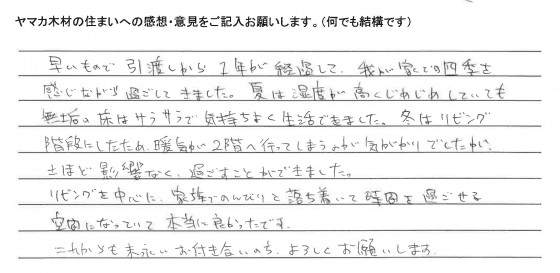 ヤマカ木材の住まいへの感想・意見をご記入お願いします。(何でも結構です)
早いもので 引渡しから 1年が 経過して、我が家での四季を
感じながら 過ごして きました。 夏は 湿度が 高くじめじめ していても
無垢の 床は サラサラで 気持ちよく 生活できました。 冬は リビング
階段にしたため、暖気が 2階へ行ってしまうのが 気がかり でしたが、
さほど 影響なく、過ごすことができました。
リビングを中心に、家族でのんびりと 落ち着いて 時間を 過ごせる
空間になっていて 本当に良かったです。
これからも 末永い お付き合いのち、よろしく お願いします。